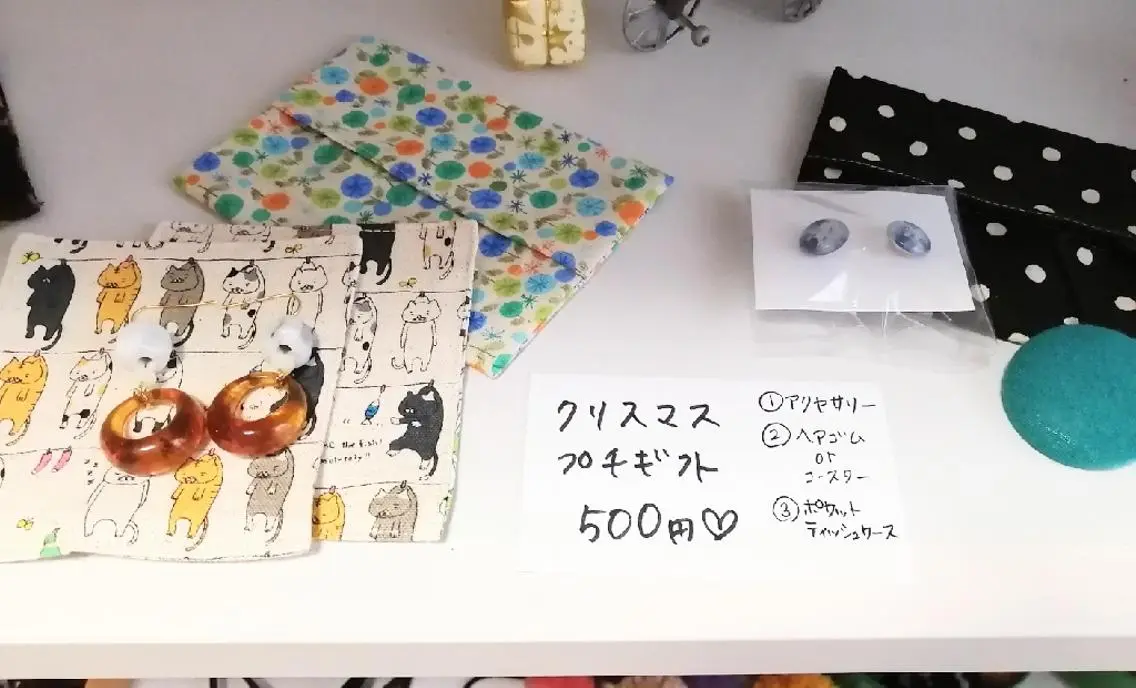 クリスマス
プチギフト
500円♡
①アクセサリー
②ヘアゴム
or
コースター
③ポケット
ティッシュケース
the fish!